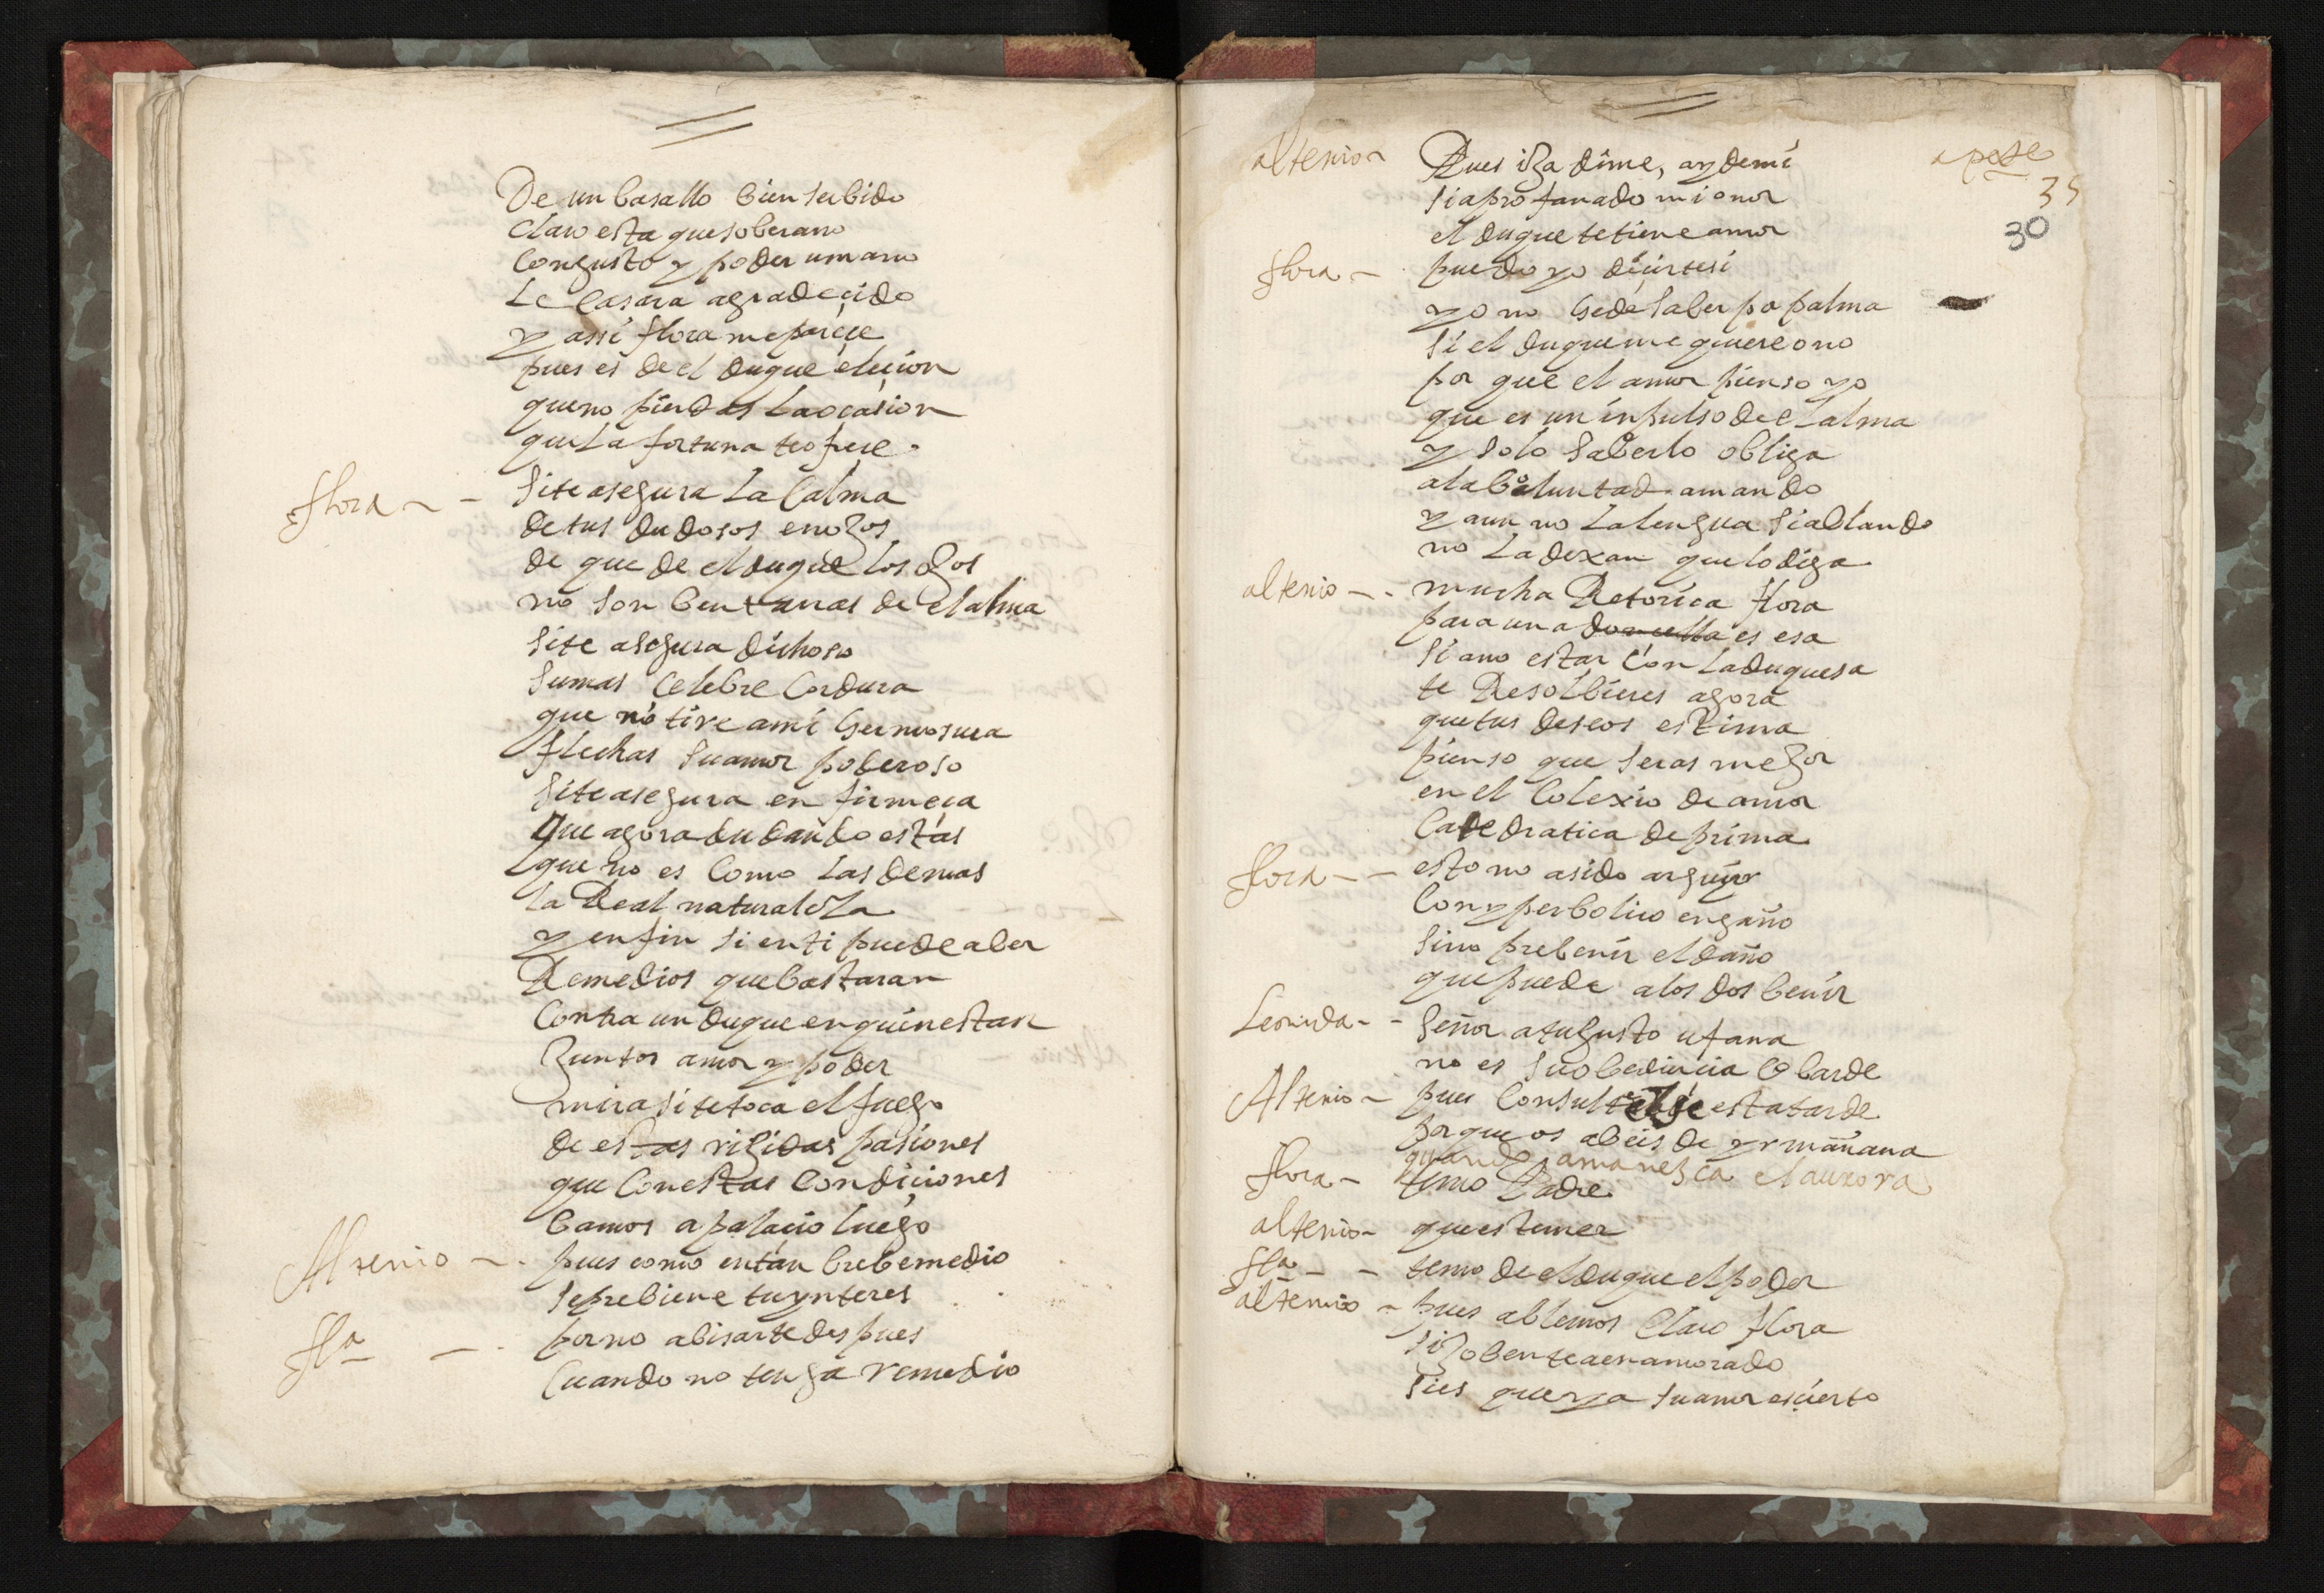 De un basallo bien serbido
claro esta que soberano
con gusto y poder umano
le casara agradeçido
y assi flora me pareçe
pues es de el duque eleçion
que no pierdas la ocasion
que la fortuna te ofreçe
flora — si te asegura la calma
de tus dudosos enojos
de que de el duque los ojos
no son bentanas de el alma
si te asegura dichoso
su mas celebre cordura
que no tire a mi hermosura
flechas su amor poderoso
si te asegura en firmeça
que agora dudando estas
que no es como las demas
la Real naturaleza
y en fin si en ti puede aber
Remedios que bastaran
contra un duque en quien estan
Juntos amor y poder
mira si te toca el fuego
de estas rigidas pasiones
que con estas condiçiones
bamos a palaçio luego
Alsenio — pues como en tan brebe medio
se prebiene tu ynteres
fla — por no abisarte despues
cuando no tenga remedio
altenio — Pues ija dime, ay de mi
si a profanado mi onor
el duque te tiene amor
35
30
flora — puedo yo deçirte si
yo no he de saber po palma
si el duque me quiere o no
por que el amor pienso yo
que es un inpulso de el alma
y solo saberlo obliga
a la boluntad amando
y aun no la lengua si ablando
no la dexan que lo diga
altenio — mucha Retorica flora
para una donçella es esa
si a no estar con la duquesa
te Resolbieres agora
que tus deseos estima
pienso que seras mejor
en el colexio de amor
catedratica de prima
flora — esto no a sido arguyr
con yperbolico engaño
sino prebenir el daño
que puede a los dos benir
Leonida — señor a tu gusto ufana
no es su obediençia cobarde
Altenio — pues esta tarde
porque os abeis de yr mañana
quando amanezca el aurora
flora — temo Padre
altenio — que es temer
fla — temo de el duque el poder
altenio — pues ablemos claro flora
si joben te a enamorado
si es que ya su amor es çierto